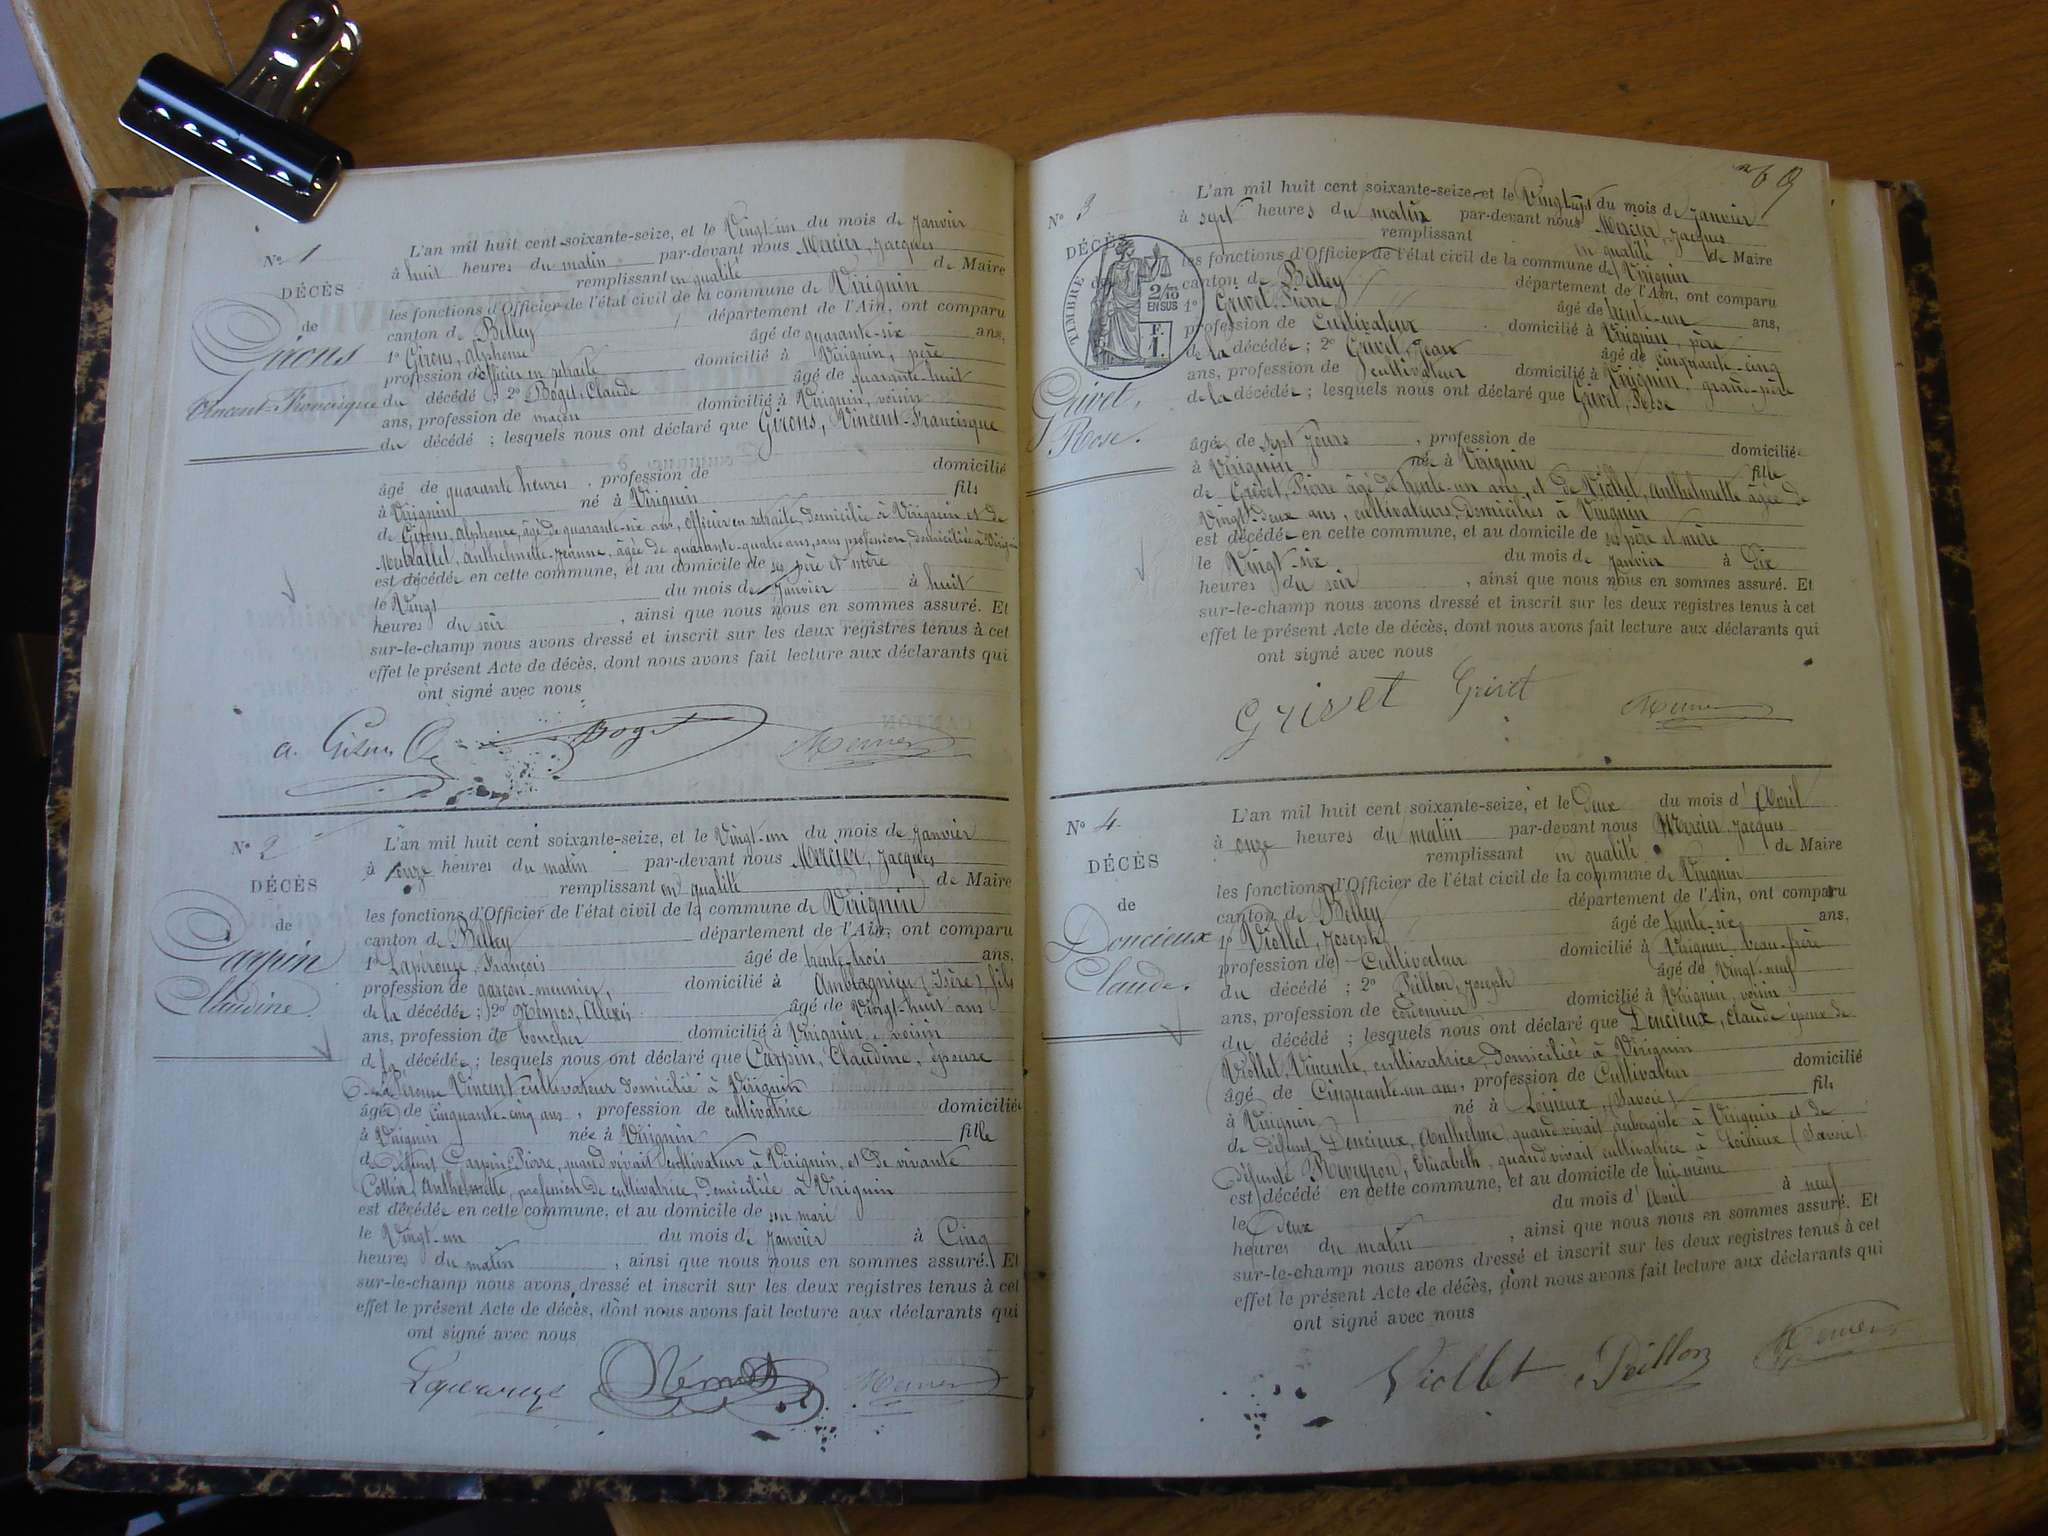 N° 1
DÉCÈS
de
Girons
Vincent-Francisque
L'an mil huit cent soixante-seize, et le Vingt-un du mois de Janvier
à huit heures du matin par-devant nous Mercier, Jacques
remplissant en qualité de Maire
les fonctions d'Officier de l'état civil de la commune de Virignin
canton de Belley département de l'Ain, ont comparu
1° Girons, Alphonse âgé de quarante-six ans,
profession d'officier en retraite domicilié à Virignin, père
du décédé ; 2° Boget, Claude âgé de quarante-huit
ans, profession de maçon domicilié à Virignin, voisin
du décédé ; lesquels nous ont déclaré que Girons, Vincent-Francisque
âgé de quarante heures, profession de domicilié
à Virignin né à Virignin fils
de Girons, Alphonse, âgé de quarante-six ans, officier en retraite, domicilié à Virignin et de
Anthelmette-Jeanne, âgée de quarante-quatre ans, sans profession, domiciliée à Virignin
est décédé en cette commune, et au domicile de ses père et mère
le Vingt du mois de Janvier à huit
heures du soir, ainsi que nous nous en sommes assuré. Et
sur-le-champ nous avons dressé et inscrit sur les deux registres tenus à cet
effet le présent Acte de décès, dont nous avons fait lecture aux déclarants qui
ont signé avec nous
Boget Mercier
N° 2
DÉCÈS
de
Carpin
Claudine.
L'an mil huit cent soixante-seize, et le Vingt-un du mois de Janvier
à onze heures du matin par-devant nous Mercier, Jacques
remplissant en qualité de Maire
les fonctions d'Officier de l'état civil de la commune de Virignin
canton de Belley département de l'Ain, ont comparu
1° Lapérouze, François âgé de trente-trois ans,
profession de garçon-meunier, domicilié à Amblagnieu (Isère), fils
de la décédée ; 2° Némos, Alexis âgé de vingt-huit ans
ans, profession de boucher domicilié à Virignin, voisin
de la décédée ; lesquels nous ont déclaré que Carpin, Claudine, épouse
de Lapérouse Vincent cultivateur domicilié à Virignin
âgée de cinquante-cinq ans, profession de cultivatrice domiciliée
à Virignin née à Virignin fille
de défunt Carpin Pierre, quand vivait cultivateur à Virignin, et de vivante
Cottin, Anthelmette, profession de cultivatrice, domiciliée à Virignin
est décédée en cette commune, et au domicile de son mari
le Vingt-un du mois de Janvier à Cinq
heures du matin, ainsi que nous nous en sommes assuré. Et
sur-le-champ nous avons dressé et inscrit sur les deux registres tenus à cet
effet le présent Acte de décès, dont nous avons fait lecture aux déclarants qui
ont signé avec nous
Laperouze Némos Mercier
69
N° 3
DÉCÈS
TIMBRE
2/10
EN SUS
F.
1.
Grivet,
Rose.
L'an mil huit cent soixante-seize et le Vingt-sept du mois de Janvier
à sept heures du matin par-devant nous Mercier, Jacques
remplissant en qualité de Maire
les fonctions d'Officier de l'état civil de la commune de Virignin
canton de Belley département de l'Ain, ont comparu
1° Grivet, Pierre âgé de trente-un ans,
profession de Cultivateur domicilié à Virignin, père
de la décédée ; 2° Grivet, Jean âgé de cinquante-cinq
ans, profession de cultivateur domicilié à Virignin, grand-père
de la décédée ; lesquels nous ont déclaré que Grivet, Rose
âgée de sept jours, profession de domiciliée
à Virignin née à Virignin fille
de Grivet, Pierre âgé de trente-un ans, et de Viollet, Anthelmette âgée de
Vingt-deux ans, cultivateurs, domiciliés à Virignin
est décédée en cette commune, et au domicile de ses père et mère
le Vingt-six du mois de Janvier à Dix
heures du soir, ainsi que nous nous en sommes assuré. Et
sur-le-champ nous avons dressé et inscrit sur les deux registres tenus à cet
effet le présent Acte de décès, dont nous avons fait lecture aux déclarants qui
ont signé avec nous
Grivet Grivet Mercier
N° 4
DÉCÈS
de
Doncieux
Claude.
L'an mil huit cent soixante-seize, et le Deux du mois d'Avril
à onze heures du matin par-devant nous Mercier, Jacques
remplissant en qualité de Maire
les fonctions d'Officier de l'état civil de la commune de Virignin
canton de Belley département de l'Ain, ont comparu
1° Viollet, Joseph âgé de trente-six ans,
profession de Cultivateur domicilié à Virignin, beau-frère
du décédé ; 2° Pillon, Joseph âgé de vingt-neuf
ans, profession de cordonnier domicilié à Virignin, voisin
du décédé ; lesquels nous ont déclaré que Doncieux, Claude époux de
Viollet, Vincente, cultivatrice, domiciliée à Virignin
âgé de Cinquante-un ans, profession de Cultivateur domicilié
à Virignin né à Loisieux, (Savoie) fils
de défunt Doncieux, Anthelme, quand vivait aubergiste à Virignin et de
défunte Reveyron, Elisabeth, quand vivait cultivatrice à Loisieux (Savoie)
est décédé en cette commune, et au domicile de lui-même
le Deux du mois d'Avril à neuf
heures du matin, ainsi que nous nous en sommes assuré. Et
sur-le-champ nous avons dressé et inscrit sur les deux registres tenus à cet
effet le présent Acte de décès, dont nous avons fait lecture aux déclarants qui
ont signé avec nous
Viollet Pillon Mercier